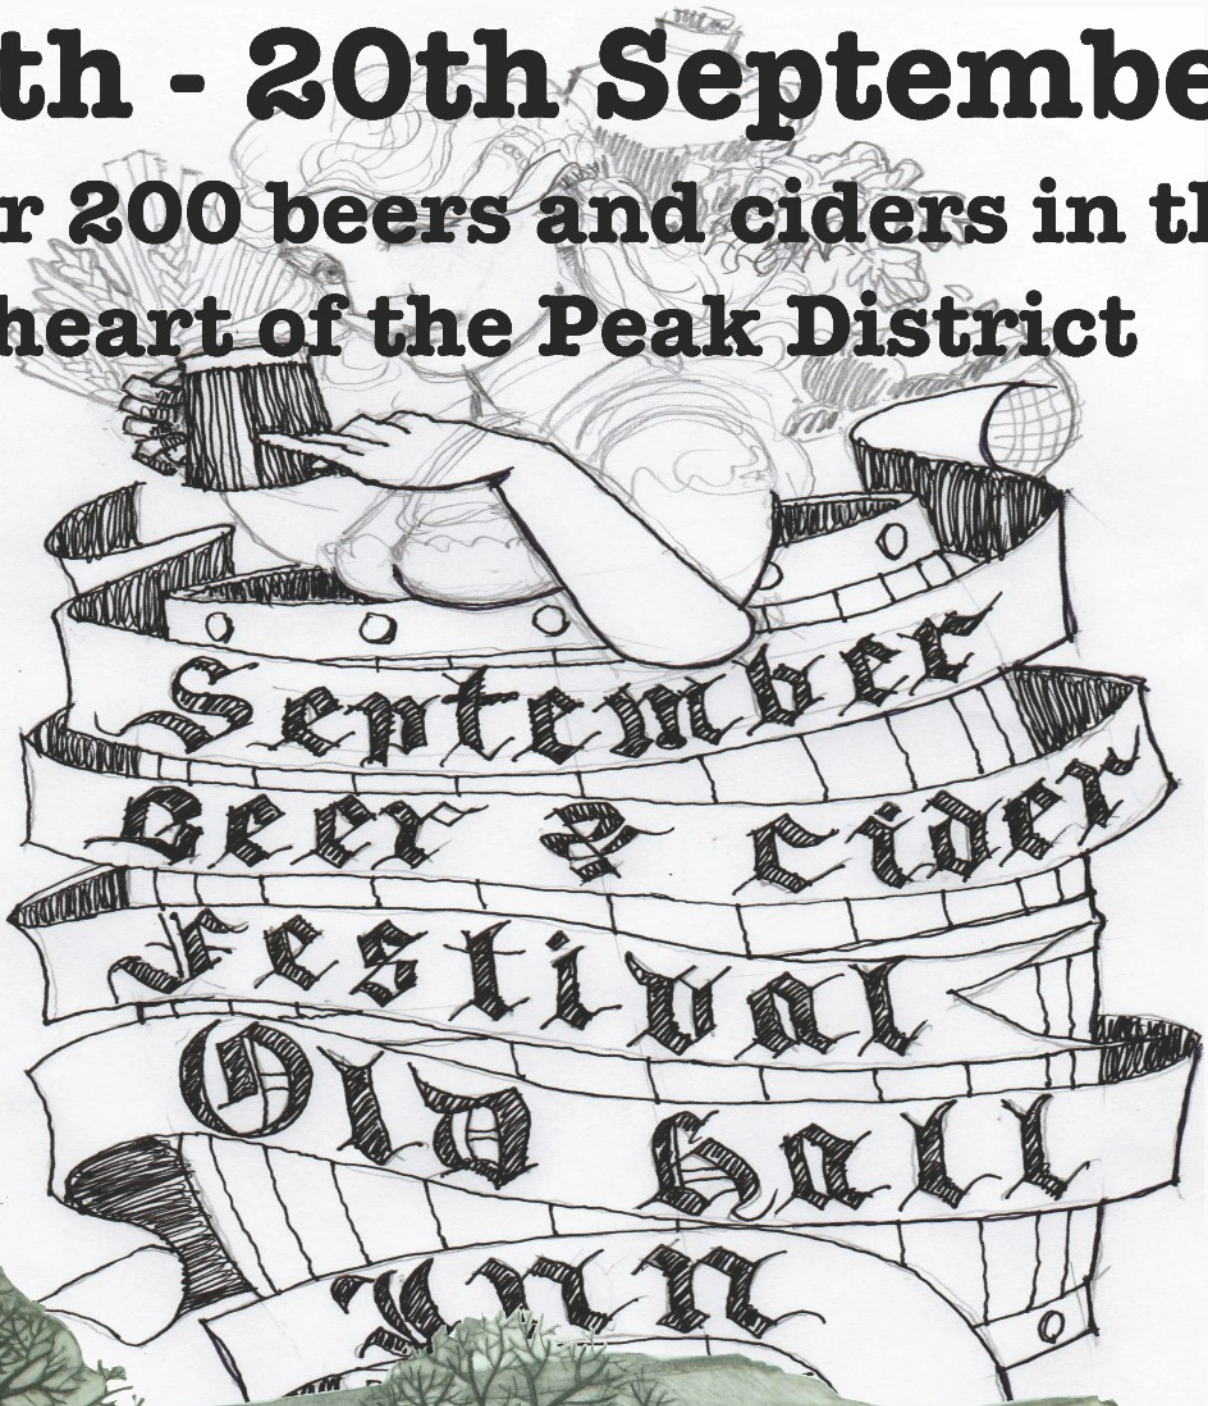 th - 20th Septembe
r 200 beers and ciders in th
heart of the Peak District
September
Beer & Cider
Festival
Old Hall
Inn